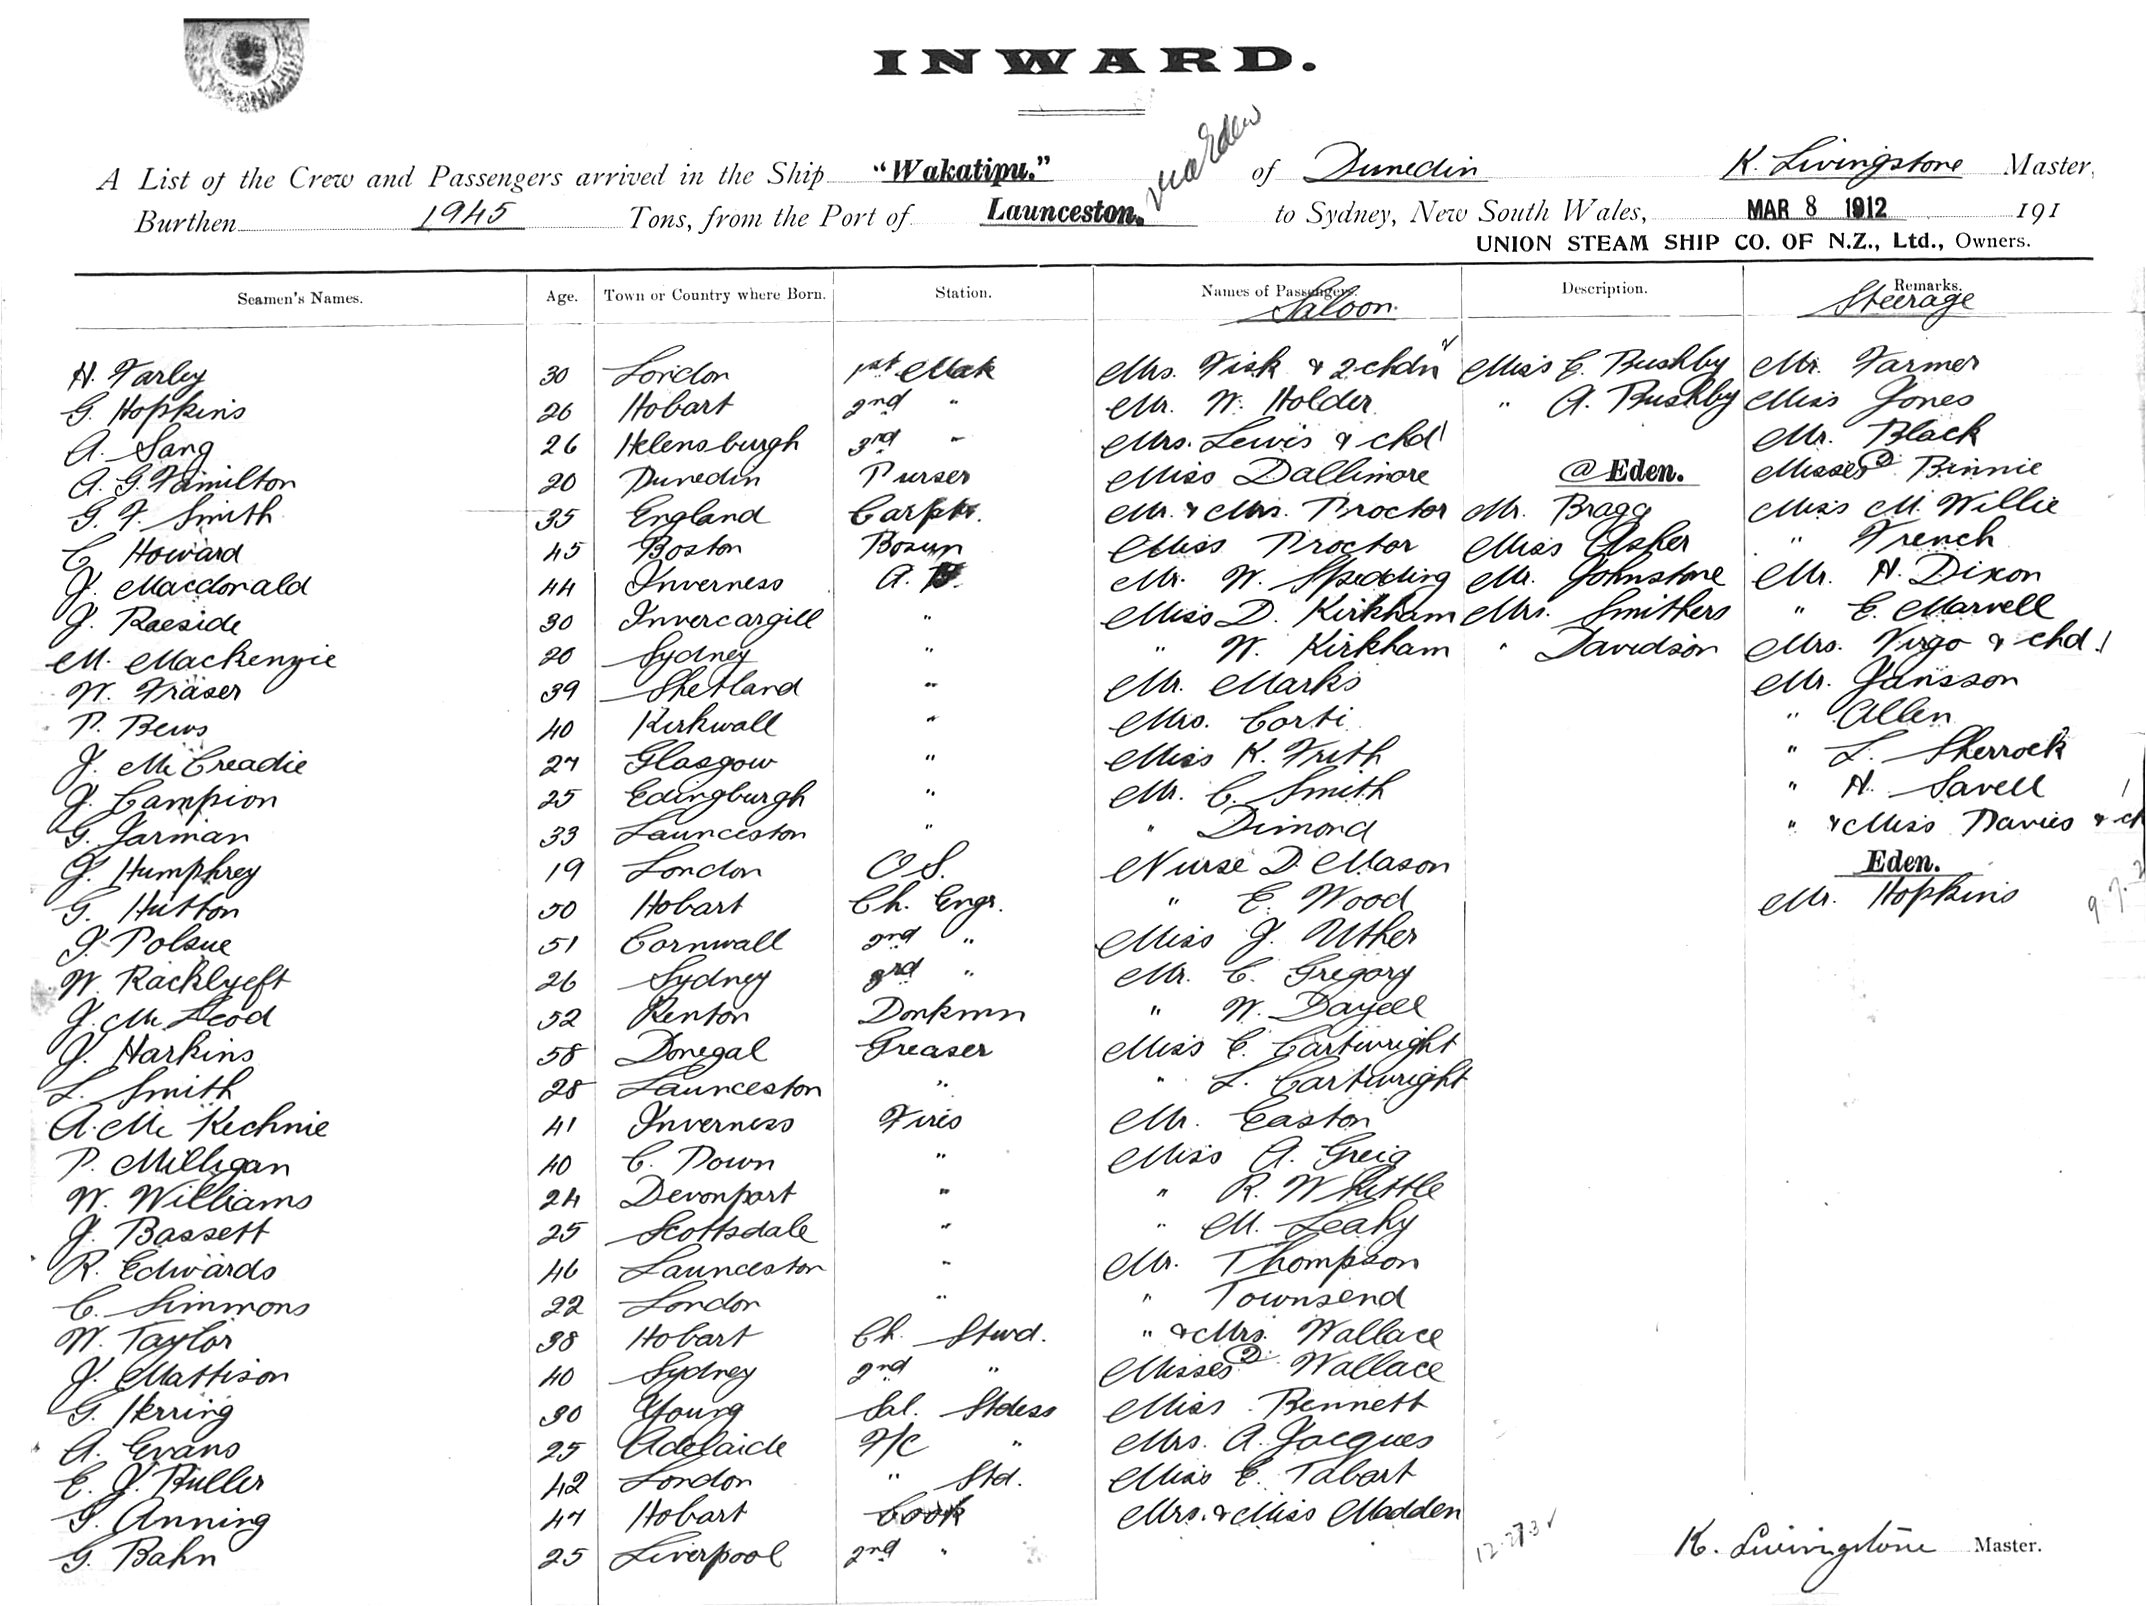 INWARD.
A List of the Crew and Passengers arrived in the Ship "Wakatipu." of Dunedin K. Livingstone Master,
via Eden
Burthen 1945 Tons, from the Port of Launceston. to Sydney, New South Wales, MAR 8 1912 191
UNION STEAM SHIP CO. OF N.Z., Ltd., Owners.
Seamen's Names. Age. Town or Country where Born. Station. Names of Passengers. Description. Remarks.
Saloon. Steerage
H. Farley 30 London 1st Mate Mrs. Fisk & 2 chdn 2 Miss E. Bushby Mr. Farmer
G. Hopkins 26 Hobart 2nd " Mr. W. Holder " A. Bushby Miss Jones
A. Sang 26 Helensburgh 3rd " Mrs. Lewis & chd 1 Mr. Black
A. G. Hamilton 20 Dunedin Purser Miss Dallimore @ Eden. Misses (2) Binnie
G. F. Smith 35 England Carptr. Mr. & Mrs. Proctor Mr. Bragg Miss M. Willie
C. Howard 45 Boston Bosun Miss Proctor Miss Asher " French
J. Macdonald 44 Inverness A. B. Mr. W. Spedding Mr. Johnstone Mr. H. Dixon
J. Raeside 30 Invercargill " Miss D. Kirkham Mrs. Smithers " E. Marvell
M. Mackenzie 20 Sydney " " W. Kirkham " Davidson Mrs. Virgo & chd. 1
W. Fraser 39 Shetland " Mr. Marks Mr. Jansson
P. Bews 40 Kirkwall " Mrs. Corti " Allen
J. McCreadie 27 Glasgow " Miss K. Frith " L. Sherrock
J. Campion 25 Edingburgh " Mr. C. Smith " H. Savell
G. Jarman 33 Launceston " " Dimond " & Miss Davies & ch
J. Humphrey 19 London O.S. Nurse D. Mason Eden.
G. Hutton 50 Hobart Ch. Engr. " E. Wood Mr. Hopkins
J. Polsue 51 Cornwall 2nd " Miss J. Uther
W. Racklyeft 26 Sydney 3rd " Mr. C. Gregory
J. McLeod 52 Renton Donkmn " W. Dayell
J. Harkins 58 Donegal Greaser Miss C. Cartwright
L. Smith 28 Launceston " " L. Cartwright
A. McKechnie 41 Inverness Fires Mr. Easton
P. Milligan 40 C. Down " Miss A. Greig
W. Williams 24 Devonport " " R. Whittle
J. Bassett 25 Scottsdale " " M. Leahy
R. Edwards 46 Launceston " Mr. Thompson
C. Simmons 22 London " " Townsend
W. Taylor 38 Hobart Ch. Stwd. " & Mrs. Wallace
J. Mattison 40 Sydney 2nd " Misses (2) Wallace
G. Herring 30 Young Sal. Stdess Miss Bennett
A. Evans 25 Adelaide F/C " Mrs. A. Jacques
E. J. Buller 42 London " Std. Miss E. Tabart
G. Anning 47 Hobart Cook Mrs. & Miss Madden
G. Bahn 25 Liverpool 2nd "
K. Livingstone Master.